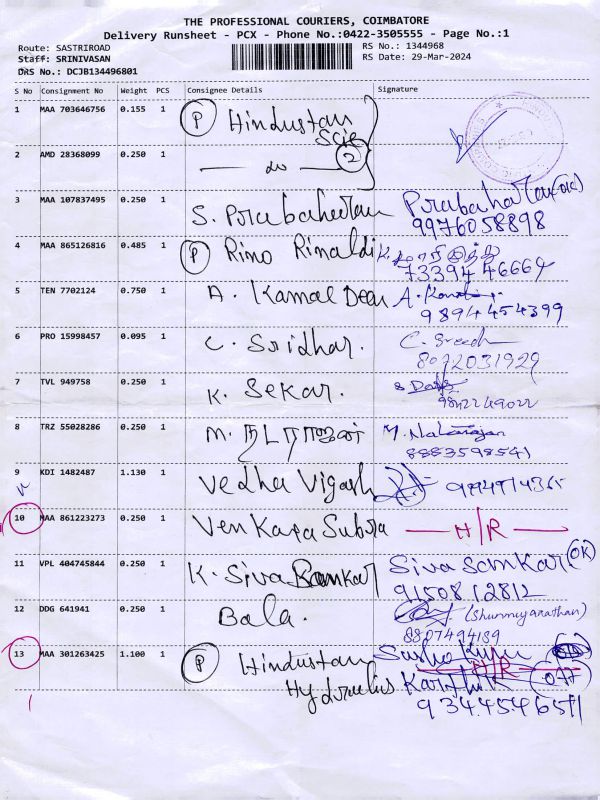 THE PROFESSIONAL COURIERS, COIMBATORE
Delivery Runsheet - PCX - Phone No.:0422-3505555 - Page No.:1
Route: SASTRIROAD
RS No.: 1344968
Staff: SRINIVASAN
RS Date: 29-Mar-2024
DRS No.: DCJB134496801
S No Consignment No Weight PCS Consignee Details Signature
1 MAA 703646756 0.155 1 P Hindustan
Scie
2 AMD 28368099 0.250 1 do 2
3 MAA 107837495 0.250 1 S. Prabaharan Prabaharan
9976058898
4 MAA 865126816 0.485 1 P Rino Rinaldi
7339446664
5 TEN 7702124 0.750 1 A. Kamal Dean
9894454399
6 PRO 15998457 0.095 1 C. Sridhar.
8072031929
7 TVL 949758 0.250 1 K. Sekar.
9842249022
8 TRZ 55028286 0.250 1 M. நடராஜன் M. Natarajan
8883598541
9 KDI 1482487 1.130 1 Vedha Vigash
10 MAA 861223273 0.250 1 Venkata Subra H/R
11 VPL 404745844 0.250 1 K. Siva Sankar Siva Sankar OK
9150812812
12 DDG 641941 0.250 1 Bala.
8807494139
13 MAA 301263425 1.100 1 P Hindustan
H/R
Hydraulics Karthik
9344546511